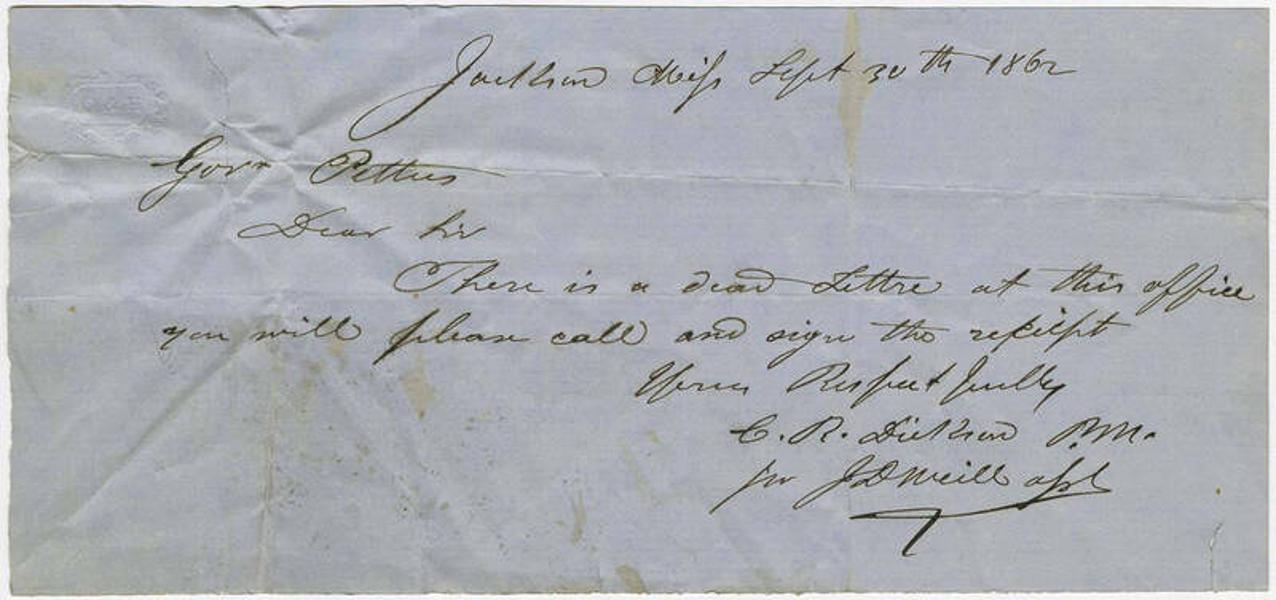 Jackson Miss Sept 30th 1862
Govr Pettus
Dear Sir
There is a dead Lettre at this office
you will please call and sign the
Yours Respectfully
C. R. Dickson P.M.
per J D Weill asst